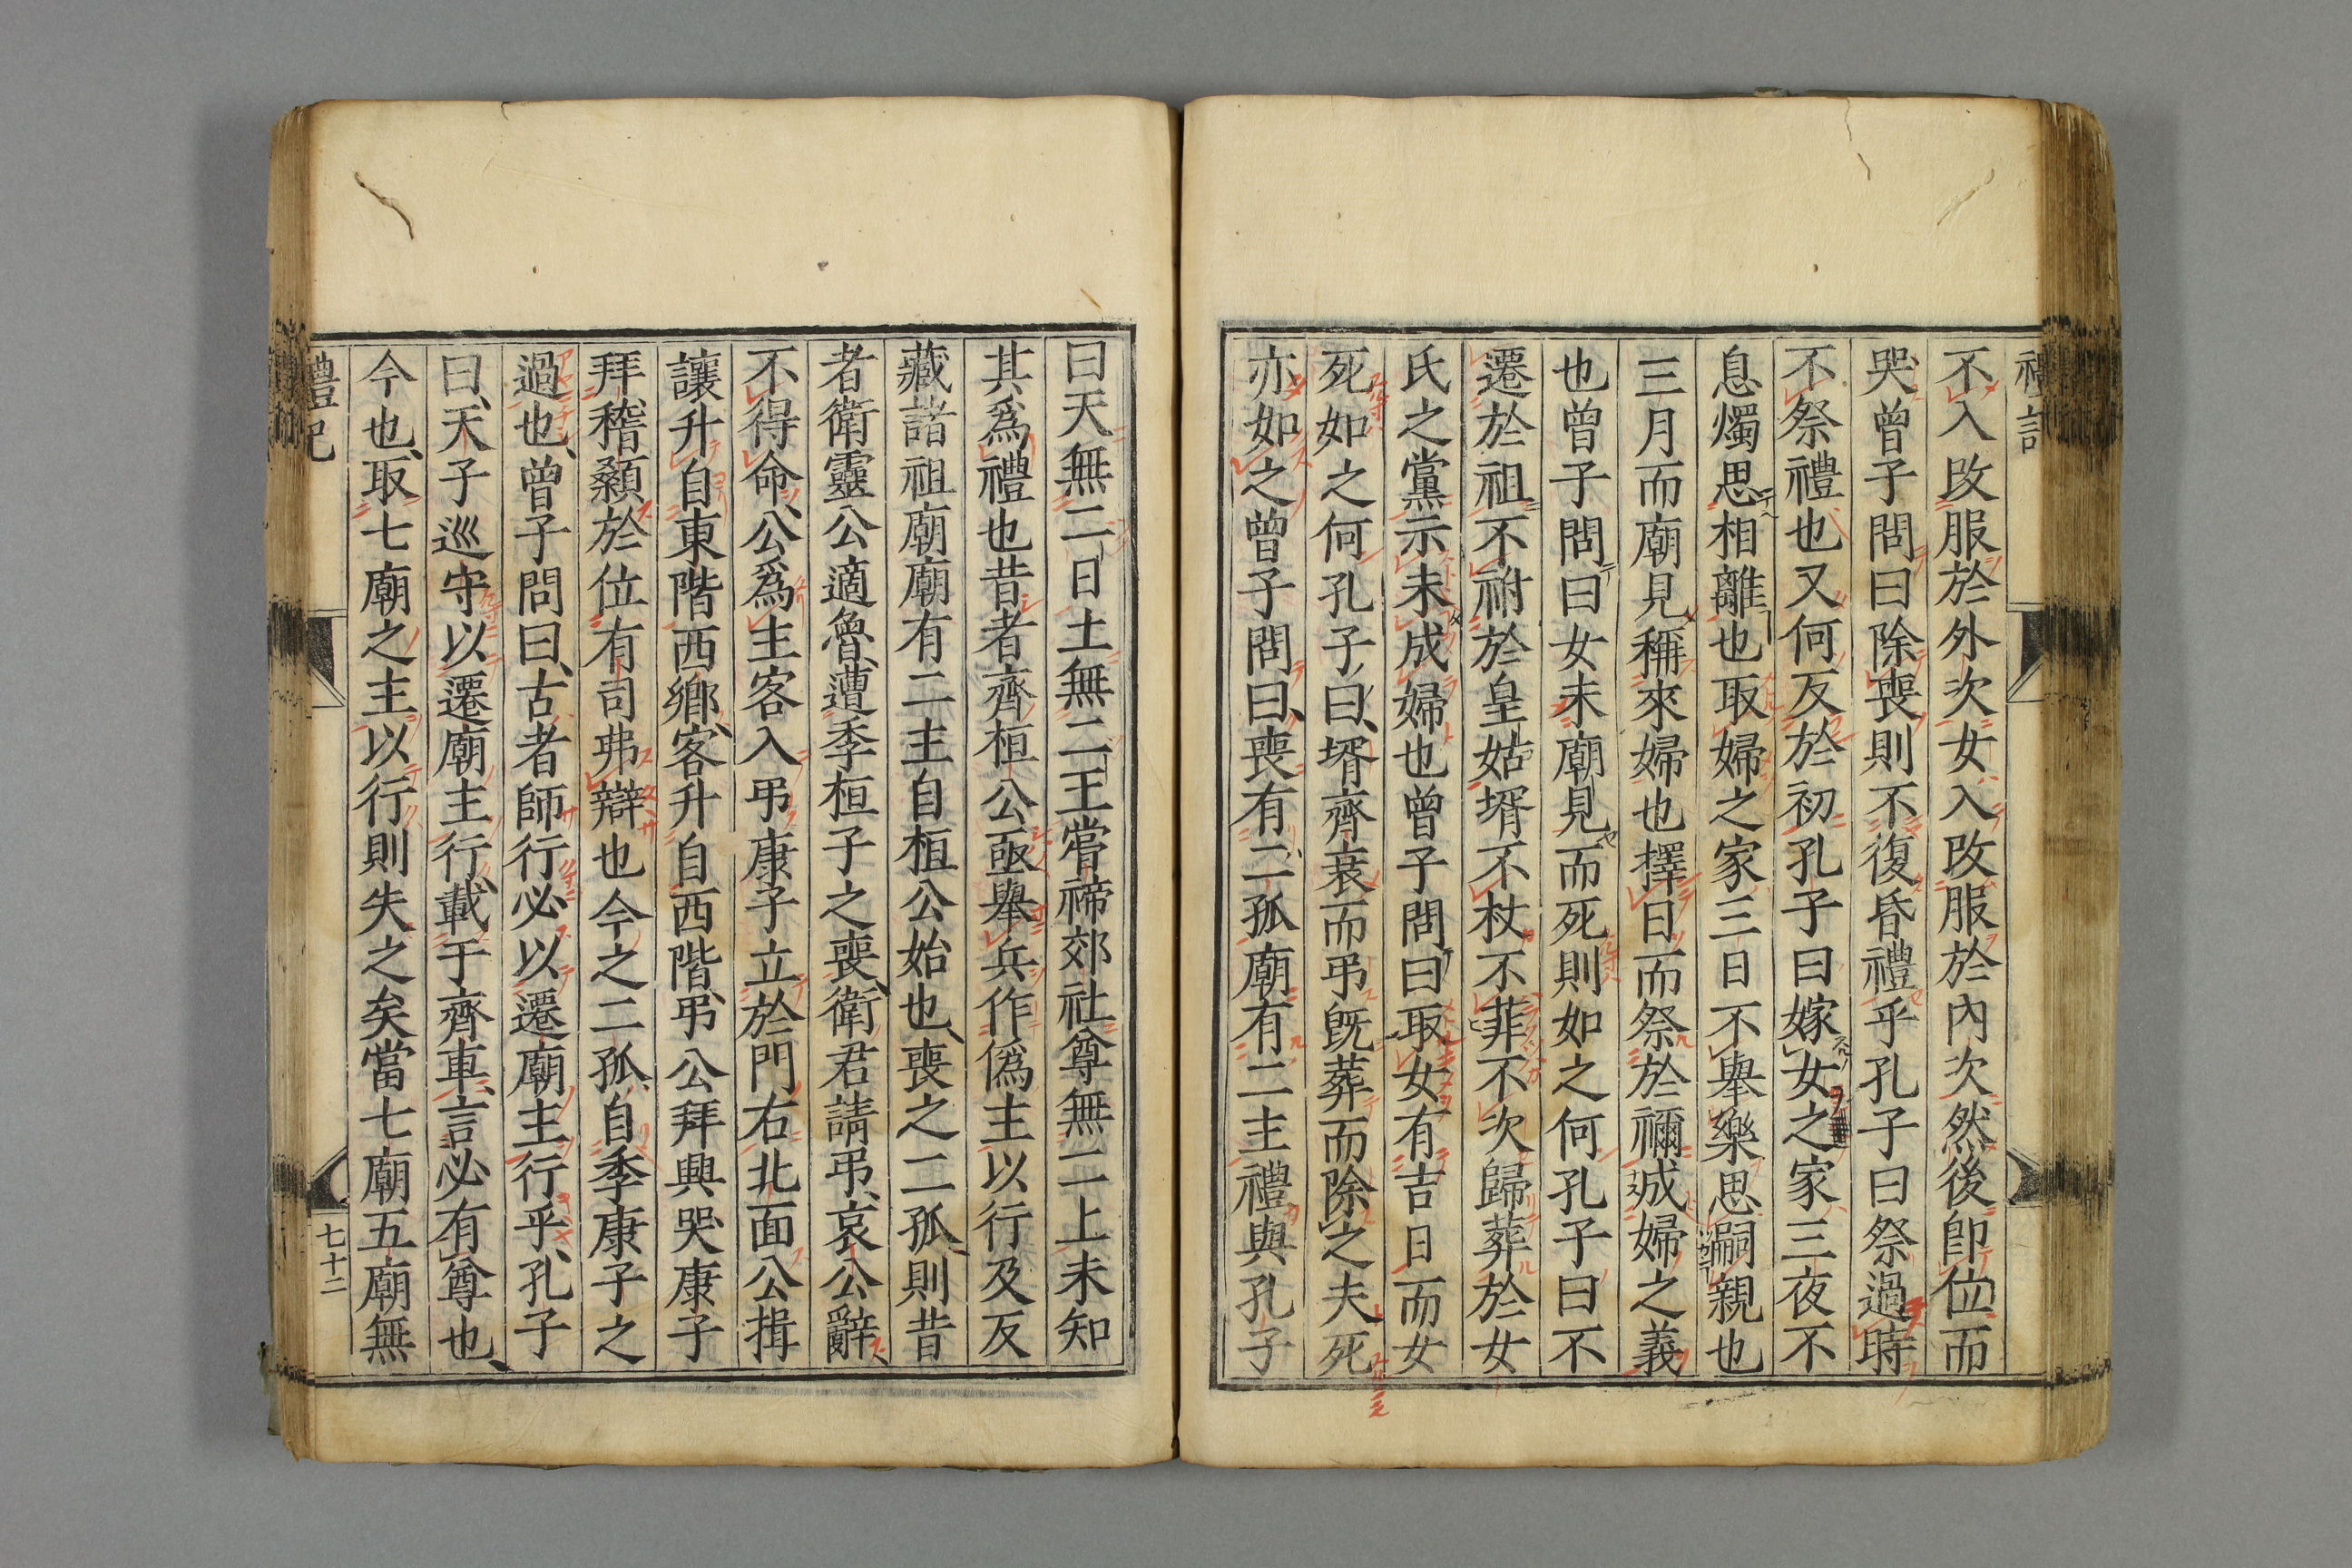 禮記
不入改服於外次女入改服於內次然後卽位而
哭曾子問曰除喪則不復昏禮乎孔子曰祭過時
不祭禮也又何反於初孔子曰嫁女之家三夜不
息燭思相離也取婦之家三日不舉樂思嗣親也
三月而廟見稱來婦也擇日而祭於禰成婦之義
也曾子問曰女未廟見而死則如之何孔子曰不
遷於祖不祔於皇姑壻不杖不菲不次歸葬於女
氏之黨示未成婦也曾子問曰取女有吉日而女
死如之何孔子曰壻齊衰而弔旣葬而除之夫死
亦如之曾子問曰喪有二孤廟有二主禮與孔子
曰天無二日土無二王嘗禘郊社尊無二上未知
其爲禮也昔者齊桓公亟舉兵作僞主以行及反
藏諸祖廟廟有二主自桓公始也喪之二孤則昔
者衛靈公適魯遭季桓子之喪衛君請弔哀公辭
不得命公爲主客入弔康子立於門右北面公揖
讓升自東階西鄉客升自西階弔公拜興哭康子
拜稽顙於位有司弗辯也今之二孤自季康子之
過也曾子問曰古者師行必以遷廟主行乎孔子
曰天子巡守以遷廟主行載于齊車言必有尊也
今也取七廟之主以行則失之矣當七廟五廟無
禮記
七十二